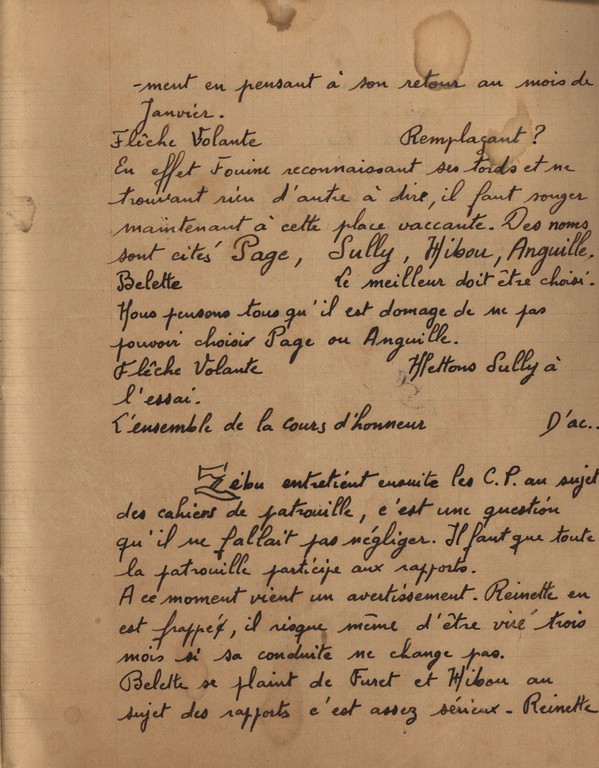 -ment en pensant à son retour au mois de
Janvier.
Flêche Volante Remplaçant ?
En effet Fouine reconnaissant ses tords et ne
trouvant rien d'autre à dire, il faut songer
maintenant à cette place vaccante. Des noms
sont cités Page, Sully, Hibou, Anguille.
Belette Le meilleur doit être choisi.
Nous pensons tous qu'il est domage de ne pas
pouvoir choisir Page ou Anguille.
Flêche Volante Mettons Sully à
l'essai.
L'ensemble de la cours d'honneur D'ac..
Zébu entretient ensuite les C.P. au sujet
des cahiers de patrouille, c'est une question
qu'il ne fallait pas négliger. Il faut que toute
la patrouille participe aux rapports.
A ce moment vient un avertissement. Reinette en
est frappé, il risque même d'être viré trois
mois si sa conduite ne change pas.
Belette se plaint de Furet et Hibou au
sujet des rapports c'est assez sérieux - Reinette